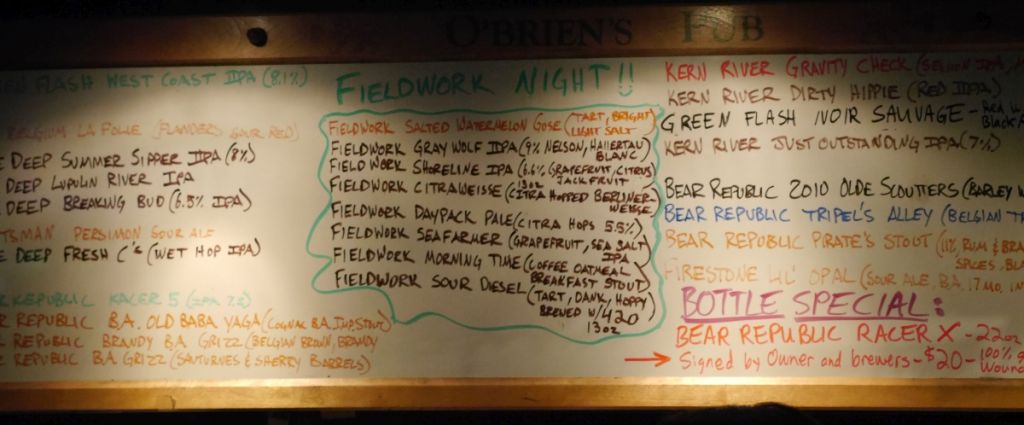 O'BRIEN'S PUB
FLASH WEST COAST IPA (8.1%)
BELGIUM LA FOLIE (FLANDERS SOUR RED)
DEEP SUMMER SIPPER IIPA (8%)
DEEP LUPULIN RIVER IPA
DEEP BREAKING BUD (6.5% IPA)
PERSIMON SOUR ALE
DEEP FRESH C'S (WET HOP IPA)
REPUBLIC RACER 5 (IPA
REPUBLIC B.A. OLD BABA YAGA (COGNAC B.A. IMP. STOUT)
REPUBLIC BRANDY B.A GRIZZ (BELGIAN BROWN, BRANDY
REPUBLIC BA GRIZZ (SAUTURNES & SHERRY BARRELS)
FIELDWORK NIGHT!!
FIELDWORK SALTED WATERMELON GOSE (TART, BRIGHT
LIGHT SALT)
FIELDWORK GRAY WOLF IPA (9% NELSON, HALLERTAU
BLANC)
FIELDWORK SHORELINE IPA (6.6% GRAPEFRUIT, CITRUS
JACKFRUIT
13oz
FIELDWORK CITRAWEISSE (CITRA HOPPED BERLINER-
WEISSE
FIELDWORK DAYPACK PALE (CITRA HOPS 5.5%)
FIELDWORK SEAFARMER (GRAPEFRUIT, SEA SALT)
IPA
FIELDWORK MORNING TIME (COFFEE OATMEAL
BREAKFAST STOUT)
FIELDWORK SOUR DIESEL (TART, DANK, HOPPY
BREWED W/420
13oz
KERN RIVER GRAVITY CHECK
KERN RIVER DIRTY HIPPIE (RED IIPA)
GREEN FLASH NOIR SAUVAGE -
KERN RIVER JUST OUTSTANDING IPA (7%)
BEAR REPUBLIC 2010 OLDE SCOUTTERS (BARLEY
BEAR REPUBLIC TRIPEL'S ALLEY (BELGIAN
BEAR REPUBLIC PIRATE'S STOUT (11% RUM &
SPICES,
FIRESTONE LIL' OPAL (SOUR ALE, B.A. 17 MO,
BOTTLE SPECIAL:
BEAR REPUBLIC RACER X - 22oz
→ Signed by Owner and brewers - $20 - 100%